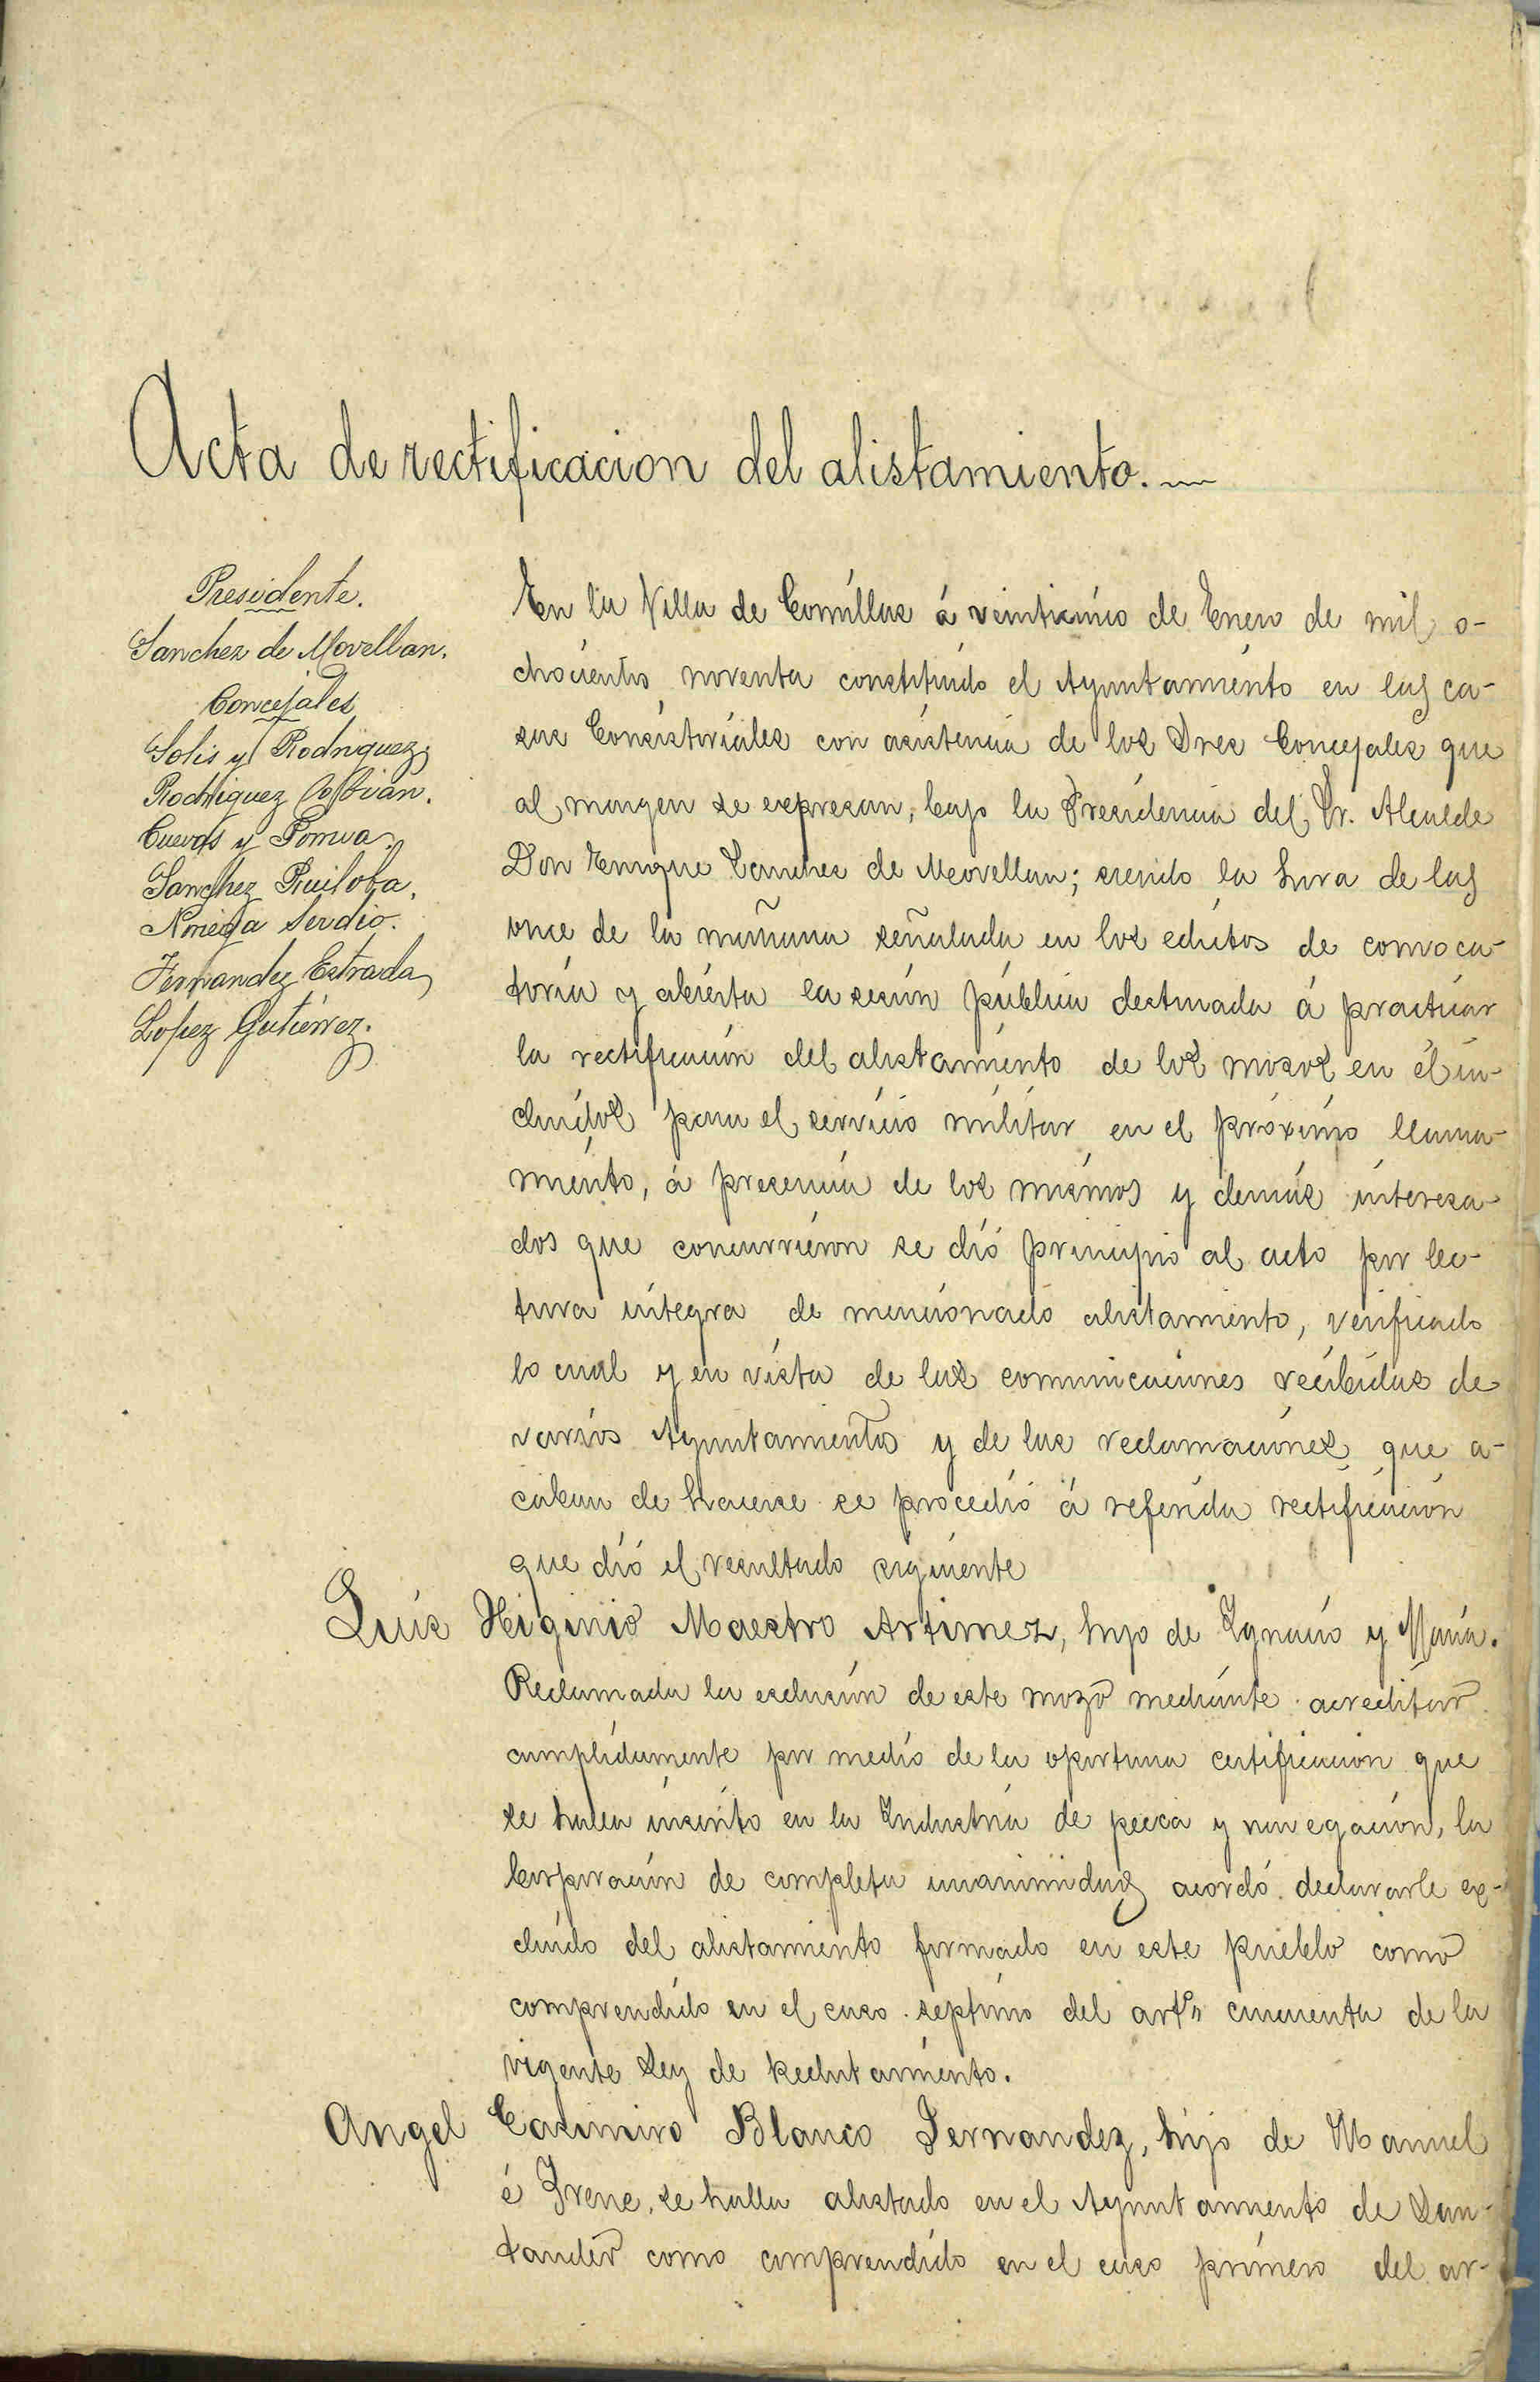 Acta de rectificacion del alistamiento.
Presidente.
Sanchez de Movellan.
Concejales
Solis y Rodriguez
Rodriguez Cobian.
Cuevas y Pomva.
Sanchez Ruiloba.
Noriega Serdio.
Fernandez Estrada
Lopez Gutierrez.
En la Villa de Comíllas á veinticinco de Enero de mil o-
chocientos noventa constituído el Ayuntamiento en las ca-
sas Consistoriales con asistencia de los Sres Concejales que
al margen se expresan, bajo la Presidencia del Sr. Alcalde
Don Enrique Sanchez de Movellan; siendo la hora de las
once de la mañana señalada en los edictos de convoca-
toria y abierta la sesión pública destinada á practicar
la rectificación del alistamiento de los mozos en él in-
cluídos para el servicio militar en el próximo llama-
miento, á presencia de los mismos y demás interesa-
dos que concurrieron se dió principio al acto por lec-
tura integra de mencionado alistamiento, verificado
lo cual y en vista de las comunicaciones recibidas de
varios Ayuntamientos y de las reclamaciones que a-
caban de hacerse se procedió á referida rectificación
que dió el resultado siguiente
Luis Higinio Maestro Artimez, hijo de Ignacio y María.
Reclamada la esclusión de este mozo mediante acreditar
cumplidamente por medio de la oportuna certificación que
se halla inscrito en la Industria de pesca y navegación, la
Corporación de completa unanimidad acordó declararle ex-
cluído del alistamiento formado en este pueblo como
comprendido en el caso septimo del artº cincuenta de la
vigente Ley de Reclutamiento.
Angel Casimiro Blanco Fernandez, hijo de Manuel
é Irene, se halla alistado en el Ayuntamiento de San-
tander como comprendido en el caso primero del ar-